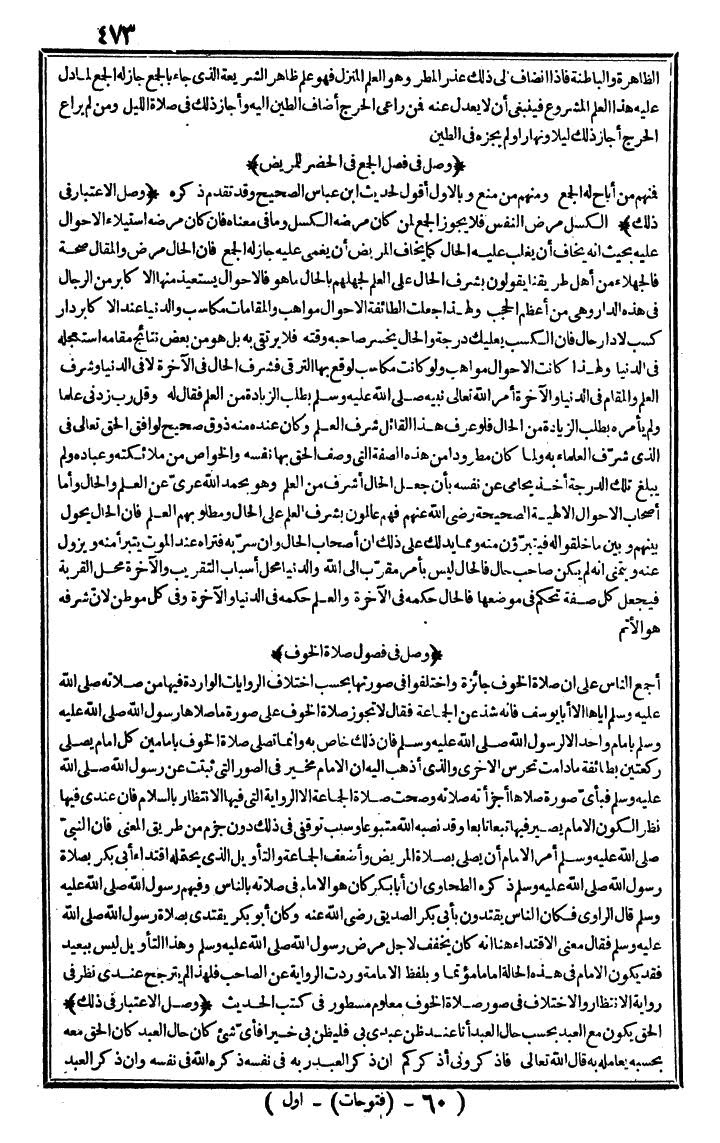 ٤٧٣
الظاهرة والباطنة فاذا انضاف الى ذلك عذر المطر وهو العلم المنزل فهو علم ظاهر الشريعة الذى جاء بالجمع جاز له الجمع لما دل
عليه هذا العلم المشروع فينبغى أن لا يعدل عنه فمن راعى الحرج أضاف الطين اليه وأجاز ذلك فى صلاة الليل ومن لم يراع
الحرج أجاز ذلك ليلا ونهارا ولم يجزه فى الطين
﴿وصل فى فصل الجمع فى الحضر للمريض﴾
فمنهم من أباح له الجمع ومنهم من منع وبالاول أقول لحديث ابن عباس الصحيح وقد تقدم ذكره ﴿وصل الاعتبار فى
ذلك﴾ الكسل مرض النفس فلا يجوز الجمع لمن كان مرضه الكسل وما فى معناه فان كان مرضه استيلاء الاحوال
عليه بحيث انه يخاف أن يغلب عليه الحال كما يخاف المريض أن يغمى عليه جاز له الجمع فان الحال مرض والمقال صحة
فالجهلاء من أهل طريقنا يقولون بشرف الحال على العلم لجهلهم بالحال ما هو فالاحوال يستعيذ منها الاكابر من الرجال
فى هذه الدار وهى من أعظم الحجب ولهذا جعلت الطائفة الاحوال مواهب والمقامات مكاسب والدنيا عند الاكابر دار
كسب لا دار حال فان الكسب يعليك درجة والحال يخسر صاحبه وقته فلا يرتقى به بل هو من بعض نتائج مقامه استعجله
فى الدنيا ولهذا كانت الاحوال مواهب ولو كانت مكاسب لوقع بها الترقى فشرف الحال فى الآخرة لا فى الدنيا وشرف
العلم والمقام فى الدنيا والآخرة أمر الله تعالى نبيه صلى الله عليه وسلم بطلب الزيادة من العلم فقال له وقل رب زدنى علما
ولم يأمره بطلب الزيادة من الحال فلو عرف هذا القائل شرف العلم وكان عنده منه ذوق صحيح لوافق الحق تعالى فى
الذى شرّف العلماء به ولما كان مطرودا من هذه الصفة التى وصف الحق بها نفسه والخواص من ملائكته وعباده ولم
يبلغ تلك الدرجة أخذ يحامى عن نفسه بأن جعل الحال أشرف من العلم وهو بحمد الله عرىّ عن العلم والحال وأما
أصحاب الاحوال الالهية الصحيحة رضى الله عنهم فهم عالمون بشرف العلم على الحال ومطلوبهم العلم فان الحال يحول
بينهم وبين ما خلقوا له فيتبرؤن منه ومما يدلك على ذلك ان أصحاب الحال وان سرّ به فتراه عند الموت يتبرأ منه ويزول
عنه ويتمنى انه لم يكن صاحب حال فالحال ليس بأمر مقرّب الى الله والدنيا محل أسباب التقريب والآخرة محل القربة
فيجعل كل صفة تحكم فى موضعها فالحال حكمه فى الآخرة والعلم حكمه فى الدنيا والآخرة وفى كل موطن لانّ شرفه
هو الأتم
﴿وصل فى فصول صلاة الخوف﴾
أجمع الناس على ان صلاة الخوف جائزة واختلفوا فى صورتها بحسب اختلاف الروايات الواردة فيها من صلاته صلى الله
عليه وسلم اياها الا أبا يوسف فانه شذ عن الجماعة فقال لا تجوز صلاة الخوف على صورة ما صلاها رسول الله صلى الله عليه
وسلم بامام واحد الا لرسول الله صلى الله عليه وسلم فان ذلك خاص به وانما تصلى صلاة الخوف بامامين كل امام يصلى
ركعتين بطائفة ما دامت تحرس الاخرى والذى أذهب اليه ان الامام مخير فى الصور التى ثبتت عن رسول الله صلى الله
عليه وسلم فبأىّ صورة صلاها أجزأته صلاته وصحت صلاة الجماعة الا الرواية التى فيها الانتظار بالسلام فان عندى فيها
نظر الكون الامام يصير فيها تبعا تابعا وقد نصبه الله متبوعا وسبب توقفى فى ذلك دون جزم من طريق المعنى فان النبىّ
صلى الله عليه وسلم أمر الامام أن يصلى بصلاة المريض وأضعف الجماعة والتأويل الذى يحتمله اقتداء أبى بكر بصلاة
رسول الله صلى الله عليه وسلم ذكره الطحاوى ان أبا بكر كان هو الامام فى صلاته بالناس وفيهم رسول الله صلى الله عليه
وسلم قال الراوى فكان الناس يقتدون بأبى بكر الصديق رضى الله عنه وكان أبو بكر يقتدى بصلاة رسول الله صلى الله
عليه وسلم فقال معنى الاقتداء هنا انه كان يخفف لاجل مرض رسول الله صلى الله عليه وسلم وهذا التأويل ليس ببعيد
فقد يكون الامام فى هذه الحالة اماما مؤتما وبلفظ الامامة وردت الرواية عن الصاحب فلهذا لم يترجح عندى نظر فى
رواية الانتظار والاختلاف فى صور صلاة الخوف معلوم مسطور فى كتب الحديث ﴿وصل الاعتبار فى ذلك﴾
الحق يكون مع العبد بحسب حال العبد أنا عند ظن عبدى بى فليظن بى خيرا فأىّ شئ كان حال العبد كان الحق معه
بحسبه يعامله به قال الله تعالى فاذكرونى أذكركم ان ذكر العبد ربه فى نفسه ذكره الله فى نفسه وان ذكر العبد
( ٦٠ - (فتوحات) - اول )